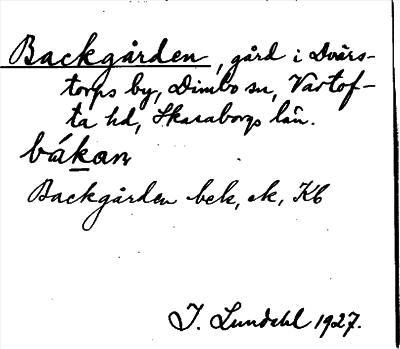 Backgården, gård i Dvärs-
torps by, Dimbo sn, Vartof-
ta hd, Skaraborgs län.
bákan
Backgården bek, ek, Kb
J. Lundahl 1927.